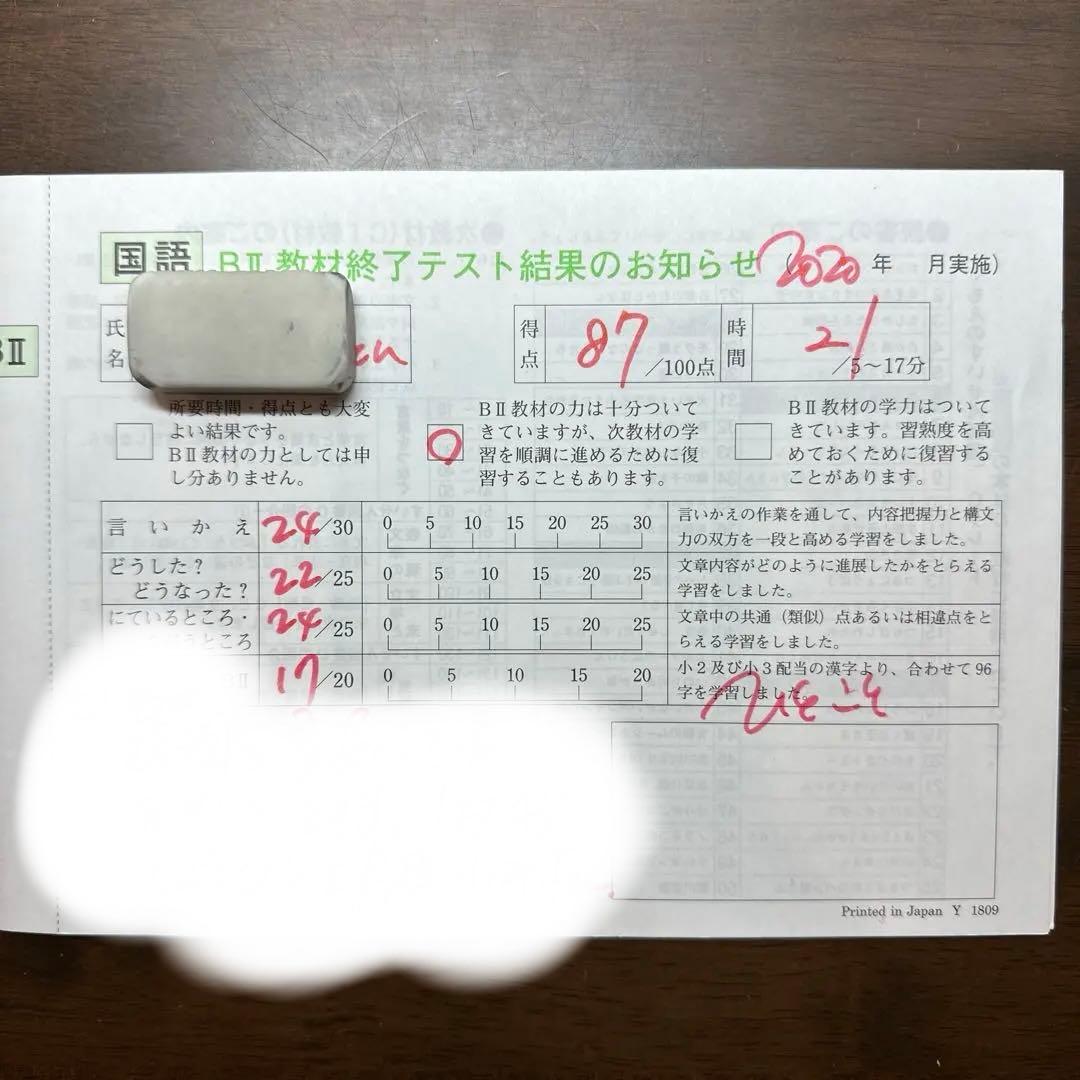 国語 BⅡ教材終了テスト結果のお知らせ (2020年 月実施)
BⅡ
氏名
得点 87/100点 時間 21/5~17分
所要時間・得点とも大変
よい結果です。
BⅡ教材の力としては申
し分ありません。
○
BⅡ教材の力は十分ついて
きていますが、次教材の学
習を順調に進めるために復
習することもあります。
BⅡ教材の学力はついて
きています。習熟度を高
めておくために復習する
ことがあります。
言いかえ 24/30 0 5 10 15 20 25 30 言いかえの作業を通して、内容把握力と構文
力の双方を一段と高める学習をしました。
どうした? 22/25 0 5 10 15 20 25 文章内容がどのように進展したかをとらえる
どうなった? 学習をしました。
にているところ・ 24/25 0 5 10 15 20 25 文章中の共通(類似)点あるいは相違点をと
ところ らえる学習をしました。
Ⅱ 17/20 0 5 10 15 20 小2及び小3配当の漢字より、合わせて96
字を学習しました。
Printed in Japan Y 1809